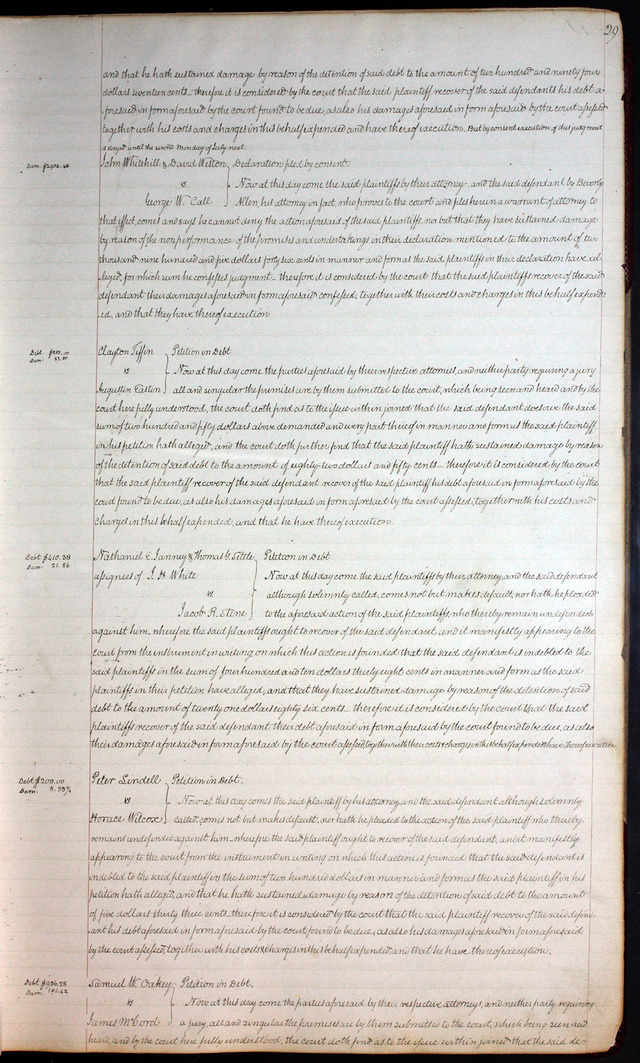 29
and that he hath sustained damage by reason of the detention of said debt to the amount of two hundred and ninety four
dollars seventeen cents – therefore it is considered by the court that the said plaintiff recover of the said defendants his debt a-
foresaid in form aforesaid by the court found to be due, as also his damages aforesaid in form aforesaid by the court assessed
together with his costs and charges in this behalf expended and have thereof execution. But by consent execution of this judgment
is stayed until the second Monday of July next.
Dam. $2905.46
John Whitehill & David Wilton } Declaration filed by consent.
vs } Now at this day come the said plaintiffs by their attorney, and the said defendant by Beverly
George W. Call } Allen, his attorney in fact, who proves to the court and files herein a warrant of attorney to
that effect, comes and says he cannot deny the action aforesaid of the said plaintiffs, nor but that they have sustained damage
by reason of the non performance of the promises and undertakings in their declaration mentioned to the amount of two
thousand nine hundred and five dollars forty six cents in manner and form as the said plaintiffs in their declaration have al-
leged, for which sum he confesses judgment – therefore it is considered by the court that the said plaintiffs recover of the said
defendant their damages aforesaid in form aforesaid confessed, together with their costs and charges in this behalf expend-
ed, and that they have thereof execution
Debt
Dam.
Clayton Tiffin } Petition in Debt
vs } Now at this day come the parties aforesaid by their respective attornies, and neither party requiring a jury
Augustin Easton } all and singular the premises are by them submitted to the court, which being seen and heard and by the
court here fully understood, the court doth find as to the issue within joined that the said defendant does owe the said
sum of two hundred and fifty dollars above demanded and every part thereof in manner and form as the said plaintiff
in his petition hath alleged, and the court doth further find that the said plaintiff hath sustained damage by reason
of the detention of said debt to the amount of eighty two dollars and fifty cents – therefore it is considered by the court
that the said plaintiff recover of the said defendant recover of the said plaintiff his debt aforesaid in form aforesaid by the
court found to be due, as also his damages aforesaid in form aforesaid by the court assessed, together with his costs and
charges in this behalf expended, and that he have thereof execution.
Debt $410.38
Dam. 21.86
Nathaniel E. Janney & Thomas G. Settle } Petition in Debt
assignees of J. H. White } Now at this day come the said plaintiffs by their attorney, and the said defendant
vs } although solemnly called, comes not but makes default, nor hath he pleaded
Jacob R. Stine } to the aforesaid action of the said plaintiffs, who thereby remain undefended
against him – wherefore the said plaintiffs ought to recover of the said defendant, and it manifestly appearing to the
court from the instrument in writing on which this action is founded that the said defendant is indebted to the
said plaintiffs in the sum of four hundred and ten dollars thirty eight cents in manner and form as the said
plaintiffs in their petition have alleged, and that they have sustained damage by reason of the detention of said
debt to the amount of twenty one dollars eighty six cents – therefore it is considered by the court that the said
plaintiffs recover of the said defendant their debt aforesaid in form aforesaid by the court found to be due, as also
their damages aforesaid in form aforesaid by the court assessed, together with their costs & charges in this behalf expended & have thereof execution
Debt $200.00
Dam. 5.33⅓
Peter Lindell } Petition in Debt.
vs } Now at this day comes the said plaintiff by his attorney, and the said defendant although solemnly
Horace Wilcox } called, comes not but makes default, nor hath he pleaded to the action of the said plaintiff who thereby
remains undefended against him – wherefore the said plaintiff ought to recover of the said defendant, and it manifestly
appearing to the court from the instrument in writing on which this action is founded that the said defendant is
indebted to the said plaintiff in the sum of two hundred dollars in manner and form as the said plaintiff in his
petition hath alleged, and that he hath sustained damage by reason of the detention of said debt to the amount
of five dollars thirty three cents – therefore it is considered by the court that the said plaintiff recover of the said defend-
ant his debt aforesaid in form aforesaid by the court found to be due, as also his damages aforesaid in form aforesaid
by the court assessed, together with his costs & charges in this behalf expended, and that he have thereof execution.
Debt $936.28
Dam. 151.42
Samuel W. Oakey } Petition in Debt.
vs } Now at this day come the parties aforesaid by their respective attorneys, and neither party requiring
James McCord } a jury, all and singular the premises are by them submitted to the court, which being seen and
heard, and by the court here fully understood, the court doth find as to the issue within joined that the said def